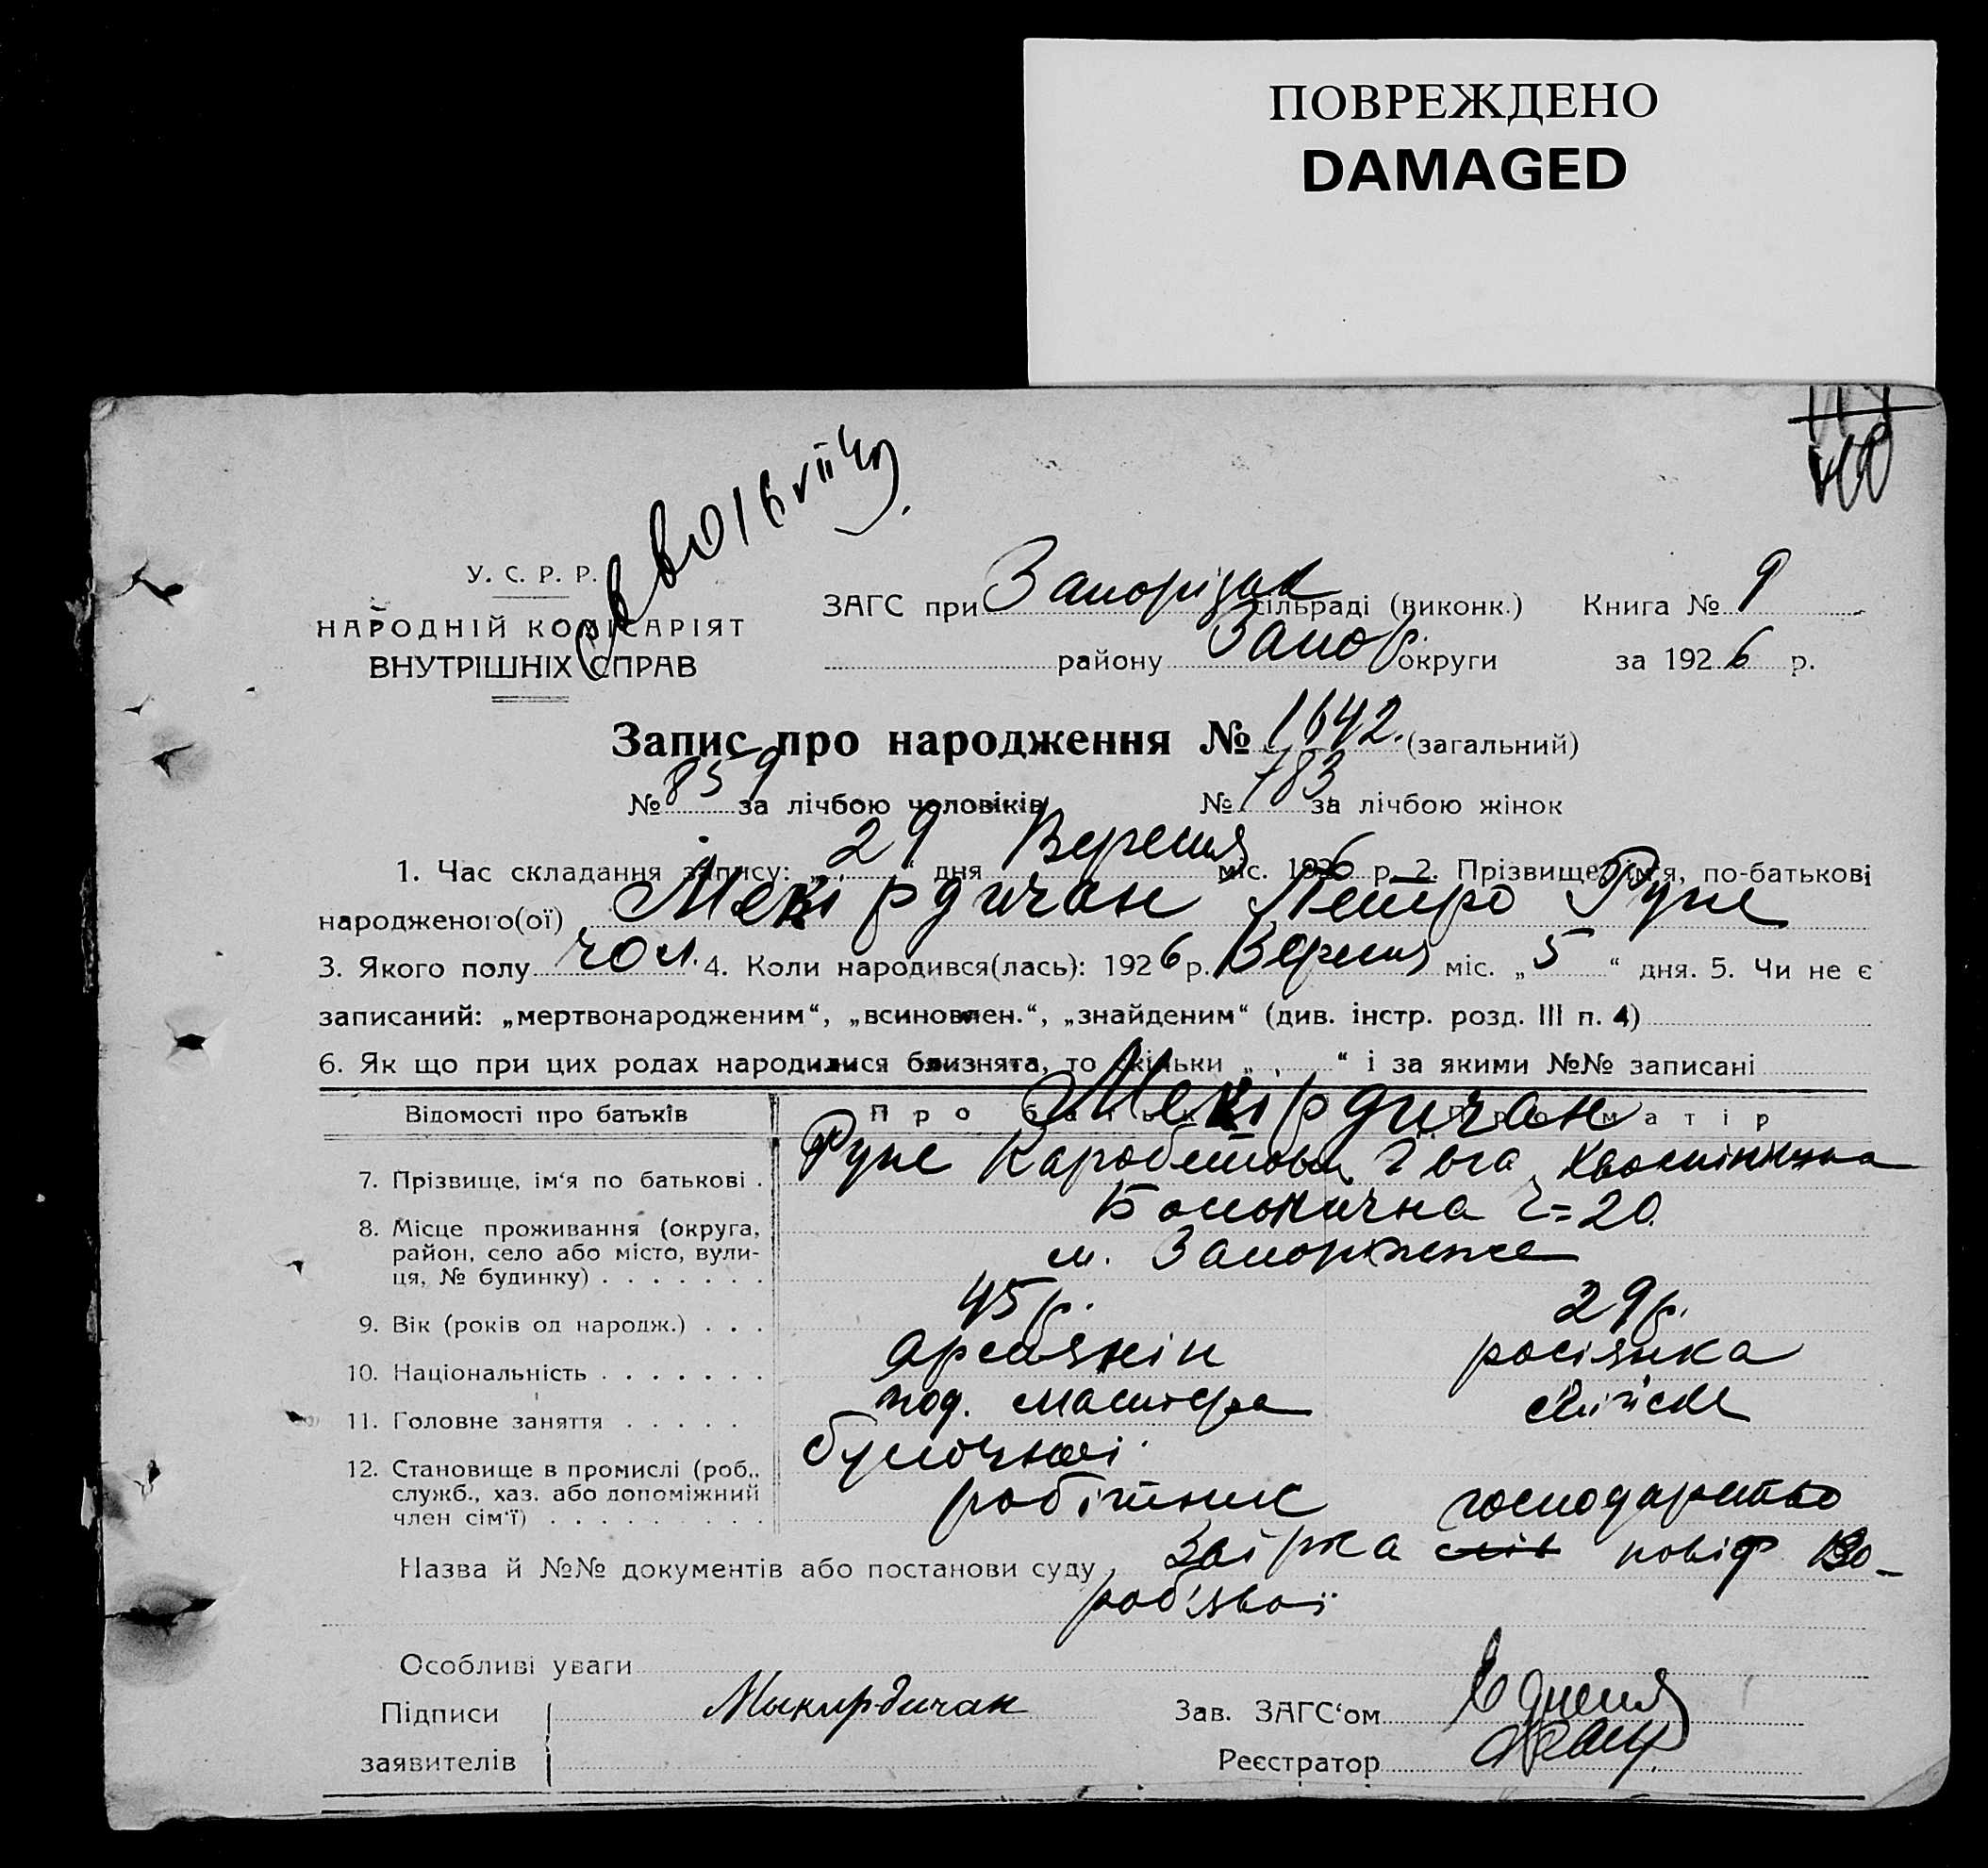 ПОВРЕЖДЕНО
DAMAGED
У. С. Р. Р.
НАРОДНІЙ КОМІСАРІЯТ
ВНУТРІШНІХ СПРАВ
ЗАГС при Запорізьк сільраді (виконк.) Книга № 9
району Запор. округи за 1926 р.
Запис про народження № 1642. (загальний)
№ 859 за лічбою чоловіків № 783 за лічбою жінок
1. Час складання запису: „29“ дня Вересня міс. 1926 р. 2. Прізвище, ім'я, по-батькові
народженого(ої) Мекірдичан Петро Рупе
3. Якого полу чол. 4. Коли народився(лась): 1926 р. Вересня міс. „5“ дня. 5. Чи не є
записаний: „мертвонародженим“, „всиновлен.“, „знайденим“ (див. інстр. розд. III п. 4)
6. Як що при цих родах народилися близнята, то скільки „ “ і за якими №№ записані
Відомості про батьків Про батька Про матір
Мекірдичан
7. Прізвище, ім'я по батькові . Рупе
8. Місце проживання (округа, ч=20.
район, село або місто, вули- м. Запоріжже
ця, № будинку) . . . . . . .
9. Вік (років од народж.) . . . 45 р. 29 р.
10. Національність . . . . . . . росіянка
11. Головне заняття . . . . . под. мастера
булочної
12. Становище в промислі (роб.,
служб., хаз. або допоміжний робітник господарство
член сім'ї) . . . . . . . . .
Назва й №№ документів або постанови суду
Особливі уваги
Підписи Мыкирдичан Зав. ЗАГС'ом
заявителів Реєстратор